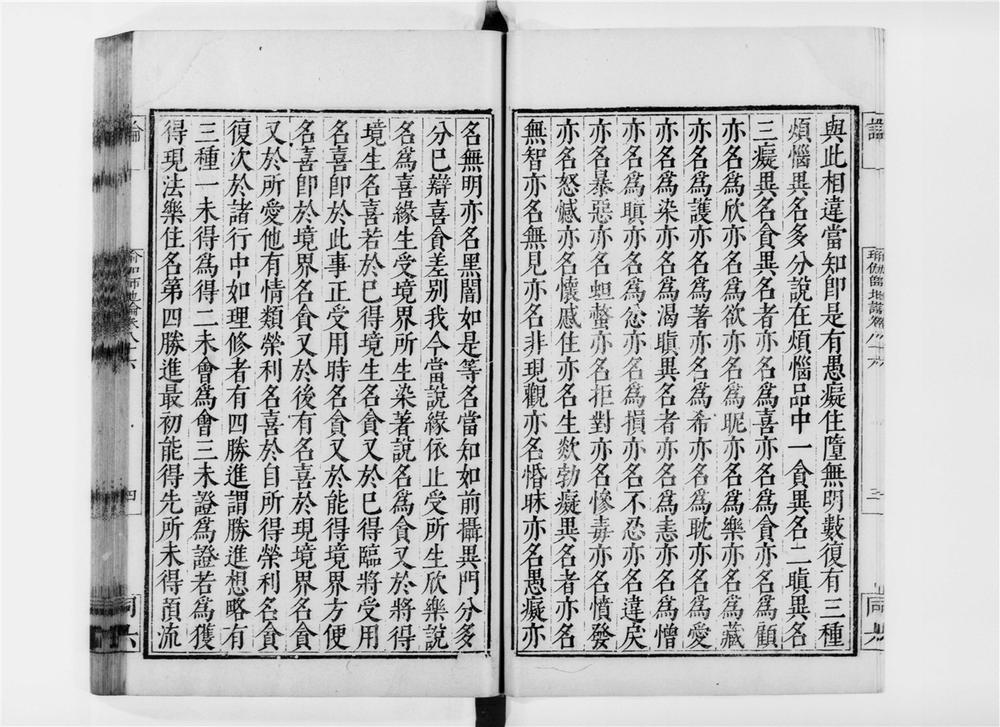 與此相違當知卽是有愚癡住墮無明數復有三種
煩惱異名多分說在煩惱品中一貪異名二瞋異名
三癡異名貪異名者亦名爲喜亦名爲貪亦名爲顧
亦名爲欣亦名爲欲亦名爲昵亦名爲樂亦名爲藏
亦名爲護亦名爲著亦名爲希亦名爲耽亦名爲愛
亦名爲染亦名爲渴瞋異名者亦名爲恚亦名爲憎
亦名爲瞋亦名爲忿亦名爲損亦名不忍亦名違戾
亦名暴惡亦名蛆螫亦名拒對亦名慘毒亦名憤發
亦名怒憾亦名懷慼住亦名生欻勃癡異名者亦名
無智亦名無見亦名非現觀亦名惛昧亦名愚癡亦
名無明亦名黑闇如是等名當知如前攝異門分多
分已辯喜貪差别我今當說緣依止受所生欣樂說
名爲喜緣生受境界所生染著說名爲貪又於將得
境生名喜若於已得境生名貪又於已得臨將受用
名喜卽於此事正受用時名貪又於能得境界方便
名喜卽於境界名貪又於後有名喜於現境界名貪
又於所愛他有情類榮利名喜於自所得榮利名貪
復次於諸行中如理修者有四勝進謂勝進想略有
三種一未得爲得二未會爲會三未證爲證若爲獲
得現法樂住名第四勝進最初能得先所未得預流
論
瑜伽師地論卷八十六
四
同六